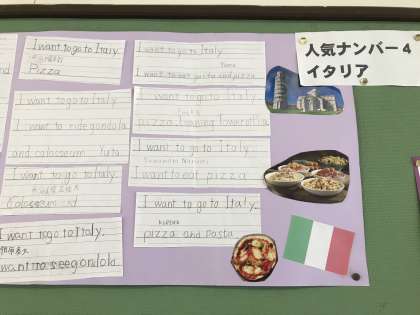 I want to go to Italy.
Pizza
I want to go to Italy.
I want to ride gondola
and colosseum Yuta
I want to go to Italy.
Colosseum
I want to go to Italy.
want to see gondola.
I want to go to Italy
I want to eat pasta and pizza
I want to go to Italy
pizza
I want to go to Italy
I want to eat pizza
I want to go to Italy.
pizza and pasta
人気ナンバー4
イタリア